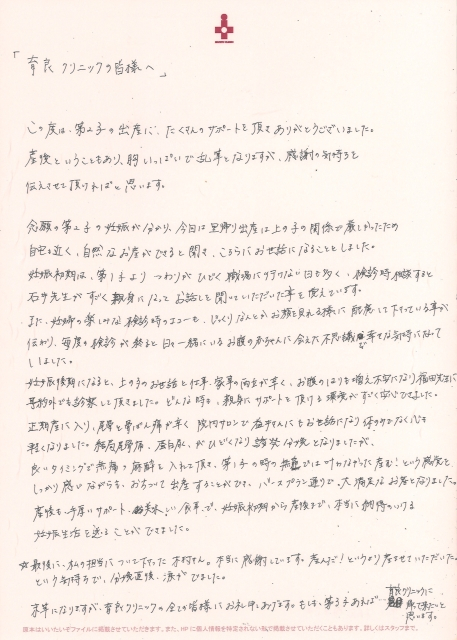 「育良クリニックの皆様へ」
この度は、第2子の出産に、たくさんのサポートを頂きありがとうございました。
産後ということもあり、胸いっぱいで乱筆となりますが、感謝の気持ちを
伝えさせて頂ければと思います。
念願の第2子の妊娠が分かり、今回は里帰り出産は上の子の関係で厳しかったため
自宅も近く、自然なお産ができると聞き、こちらにお世話になることとしました。
妊娠初期は、第1子より つわりがひどく 職場に行けない日も多く、検診時相談すると
石井先生がすごく親身になってお話しを聞いていただいた事を覚えています。
また、妊婦の楽しみな検診時のエコーも、じっくりなんとかお顔を見れる様に配慮して下さっている事が
伝わり、毎度の検診が終ると日々一緒にいるお腹の赤ちゃんに会えた不思議で幸せな気持になって
いました。
妊娠後期になると、上の子のお世話と仕事、家事の両立が辛く、お腹のはりも増え不安になり福田先生に
予約外でも診察して頂きました。どんな時も、親身にサポートを頂ける環境がすごく安心できました。
正期産に入り、尾骨と骨ばん痛が辛く 院内サロンで 先生にもお話しになり体のみでなく心も
軽くなりました。結局尾骨痛、蛋白尿、がひどくなり 誘発分娩となりましたが、
良いタイミングで無痛の麻酔を入れて頂き、第1子の時の では叶わなかった産む!という感覚を
しっかり感じながらも、おちついて出産することができ、バースプラン通りで、大満足なお産となりました。
産後も手厚いサポート、美味しい食事で、妊娠初期から産後まで、本当に納得のいける
妊娠生活を送ることができました。
☆最後に、私の担当についてくださった木村さん。本当に感謝しています。産んだ!というより産ませていただいた
という気持ちで、分娩直後、涙がでました。
末筆になりますが、育良クリニックの全ての皆様にお礼申しあげます。もしも、第3子あれば……
育良クリニックに
帰って来たいと
思います。
原本はいいたいぞファイルに掲載させていただきます。また、HPに個人情報を特定されない形で掲載させていただくこともあります。詳しくはスタッフまで。